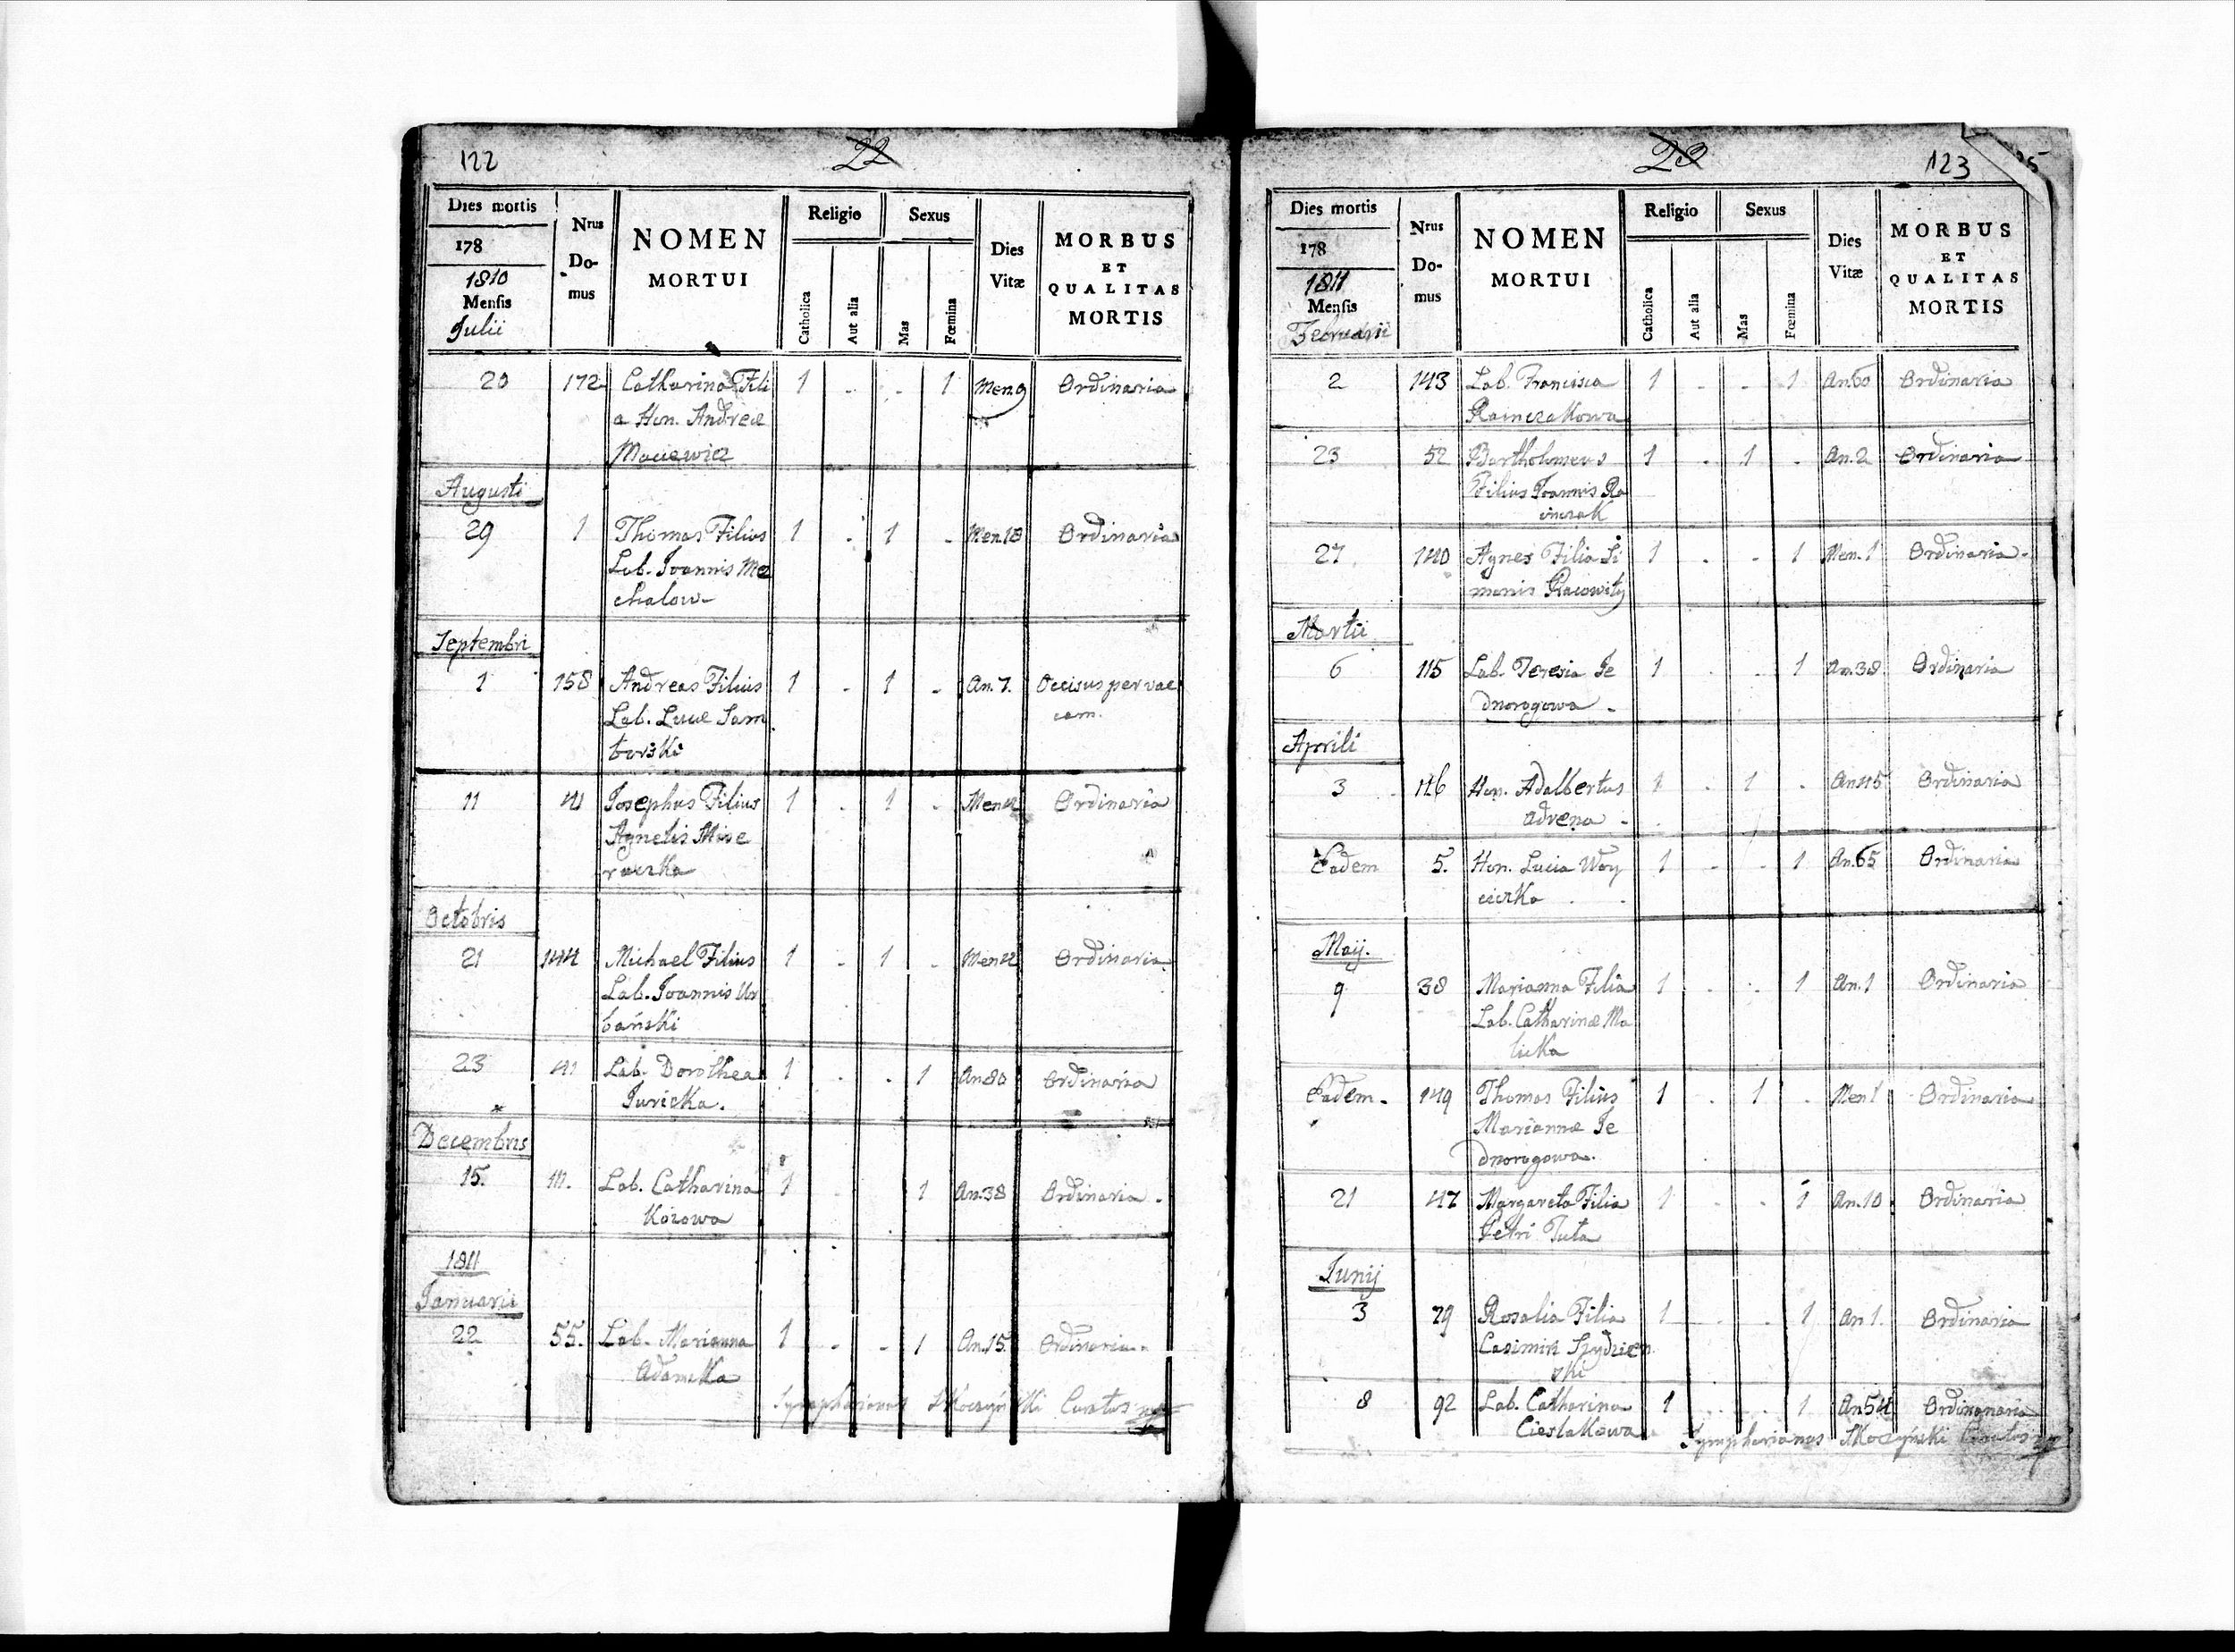 122
22
Dies mortis
178
1810
Mensis
Julii
Nrus
Do-
mus
NOMEN
MORTUI
Religio
Catholica
Aut alia
Sexus
Mas
Fœmina
Dies
Vitæ
MORBUS
ET
QUALITAS
MORTIS
20 172 Catharina Fili 1 - - 1 Men 9 Ordinaria
a Hon. Andreæ
Maciewicz
Augusti
29 1 Thomas Filius 1 - 1 - Men 18 Ordinaria
Lab. Joannis Me
chalow-
Septembri
1 158 Andreas Filius 1 - 1 - An. 7. Occisus per vac
Lab. Lucæ Sam cam.
borski
11 41 Josephus Filius 1 - 1 - Men Ordinaria
Agnetis Mise
raczka
Octobris
21 144 Michael Filius 1 - 1 - Men Ordinaria
Lab. Joannis Ur
bański
23 41 Lab. Dorothea 1 - - 1 An 80 Ordinaria
Juricka.
Decembris
15. 111. Lab. Catharina 1 1 An. 38 Ordinaria.
Kozowa
1811
Januarii
22 55. Lab. Marianna 1 - - 1 An. 15. Ordinaria.
Adamska
Symphorianus Skoczyński Curatus
23
123
Dies mortis
178
1811
Mensis
Februarii
Nrus
Do-
mus
NOMEN
MORTUI
Religio
Catholica
Aut alia
Sexus
Mas
Fœmina
Dies
Vitæ
MORBUS
ET
QUALITAS
MORTIS
2 143 Lab. Francisca 1 - - 1 An. 60 Ordinaria
Rainczakowa
23 52 Bartholomeus 1 - 1 - An. 2 Ordinaria
Filius Joannis Ra
inczak
27 140 Agnes Filia Si 1 - - 1 Men. 1 Ordinaria.
monis Racowity
Martii
6 115 Lab. Teresia Je 1 - - 1 An. 38. Ordinaria
dnorogowa -
Aprili
3 116 Hon. Adalbertus 1 - 1 - An 45 Ordinaria
advena -
Eadem 5. Hon. Lucia Woy 1 - - 1 An. 65 Ordinaria
ciczka
Maij.
9 38 Marianna Filia 1 - - 1 An. 1 Ordinaria
Lab. Catharinæ Ma
licka
Eadem. 149 Thomas Filius 1 - 1 - Men 1 Ordinaria
Mariannæ Je
dnorogowa.
21 47 Margareta Filia 1 - - 1 An. 10 Ordinaria
Petri Tuta
Junij
3 29 Rosalia Filia 1 - - 1 An 1. Ordinaria
Casimiri Szydzien
ski
8 92 Lab. Catharina 1 1 An 54 Ordinaria
Cieslakowa
Symphorianus Skoczyński Curatus